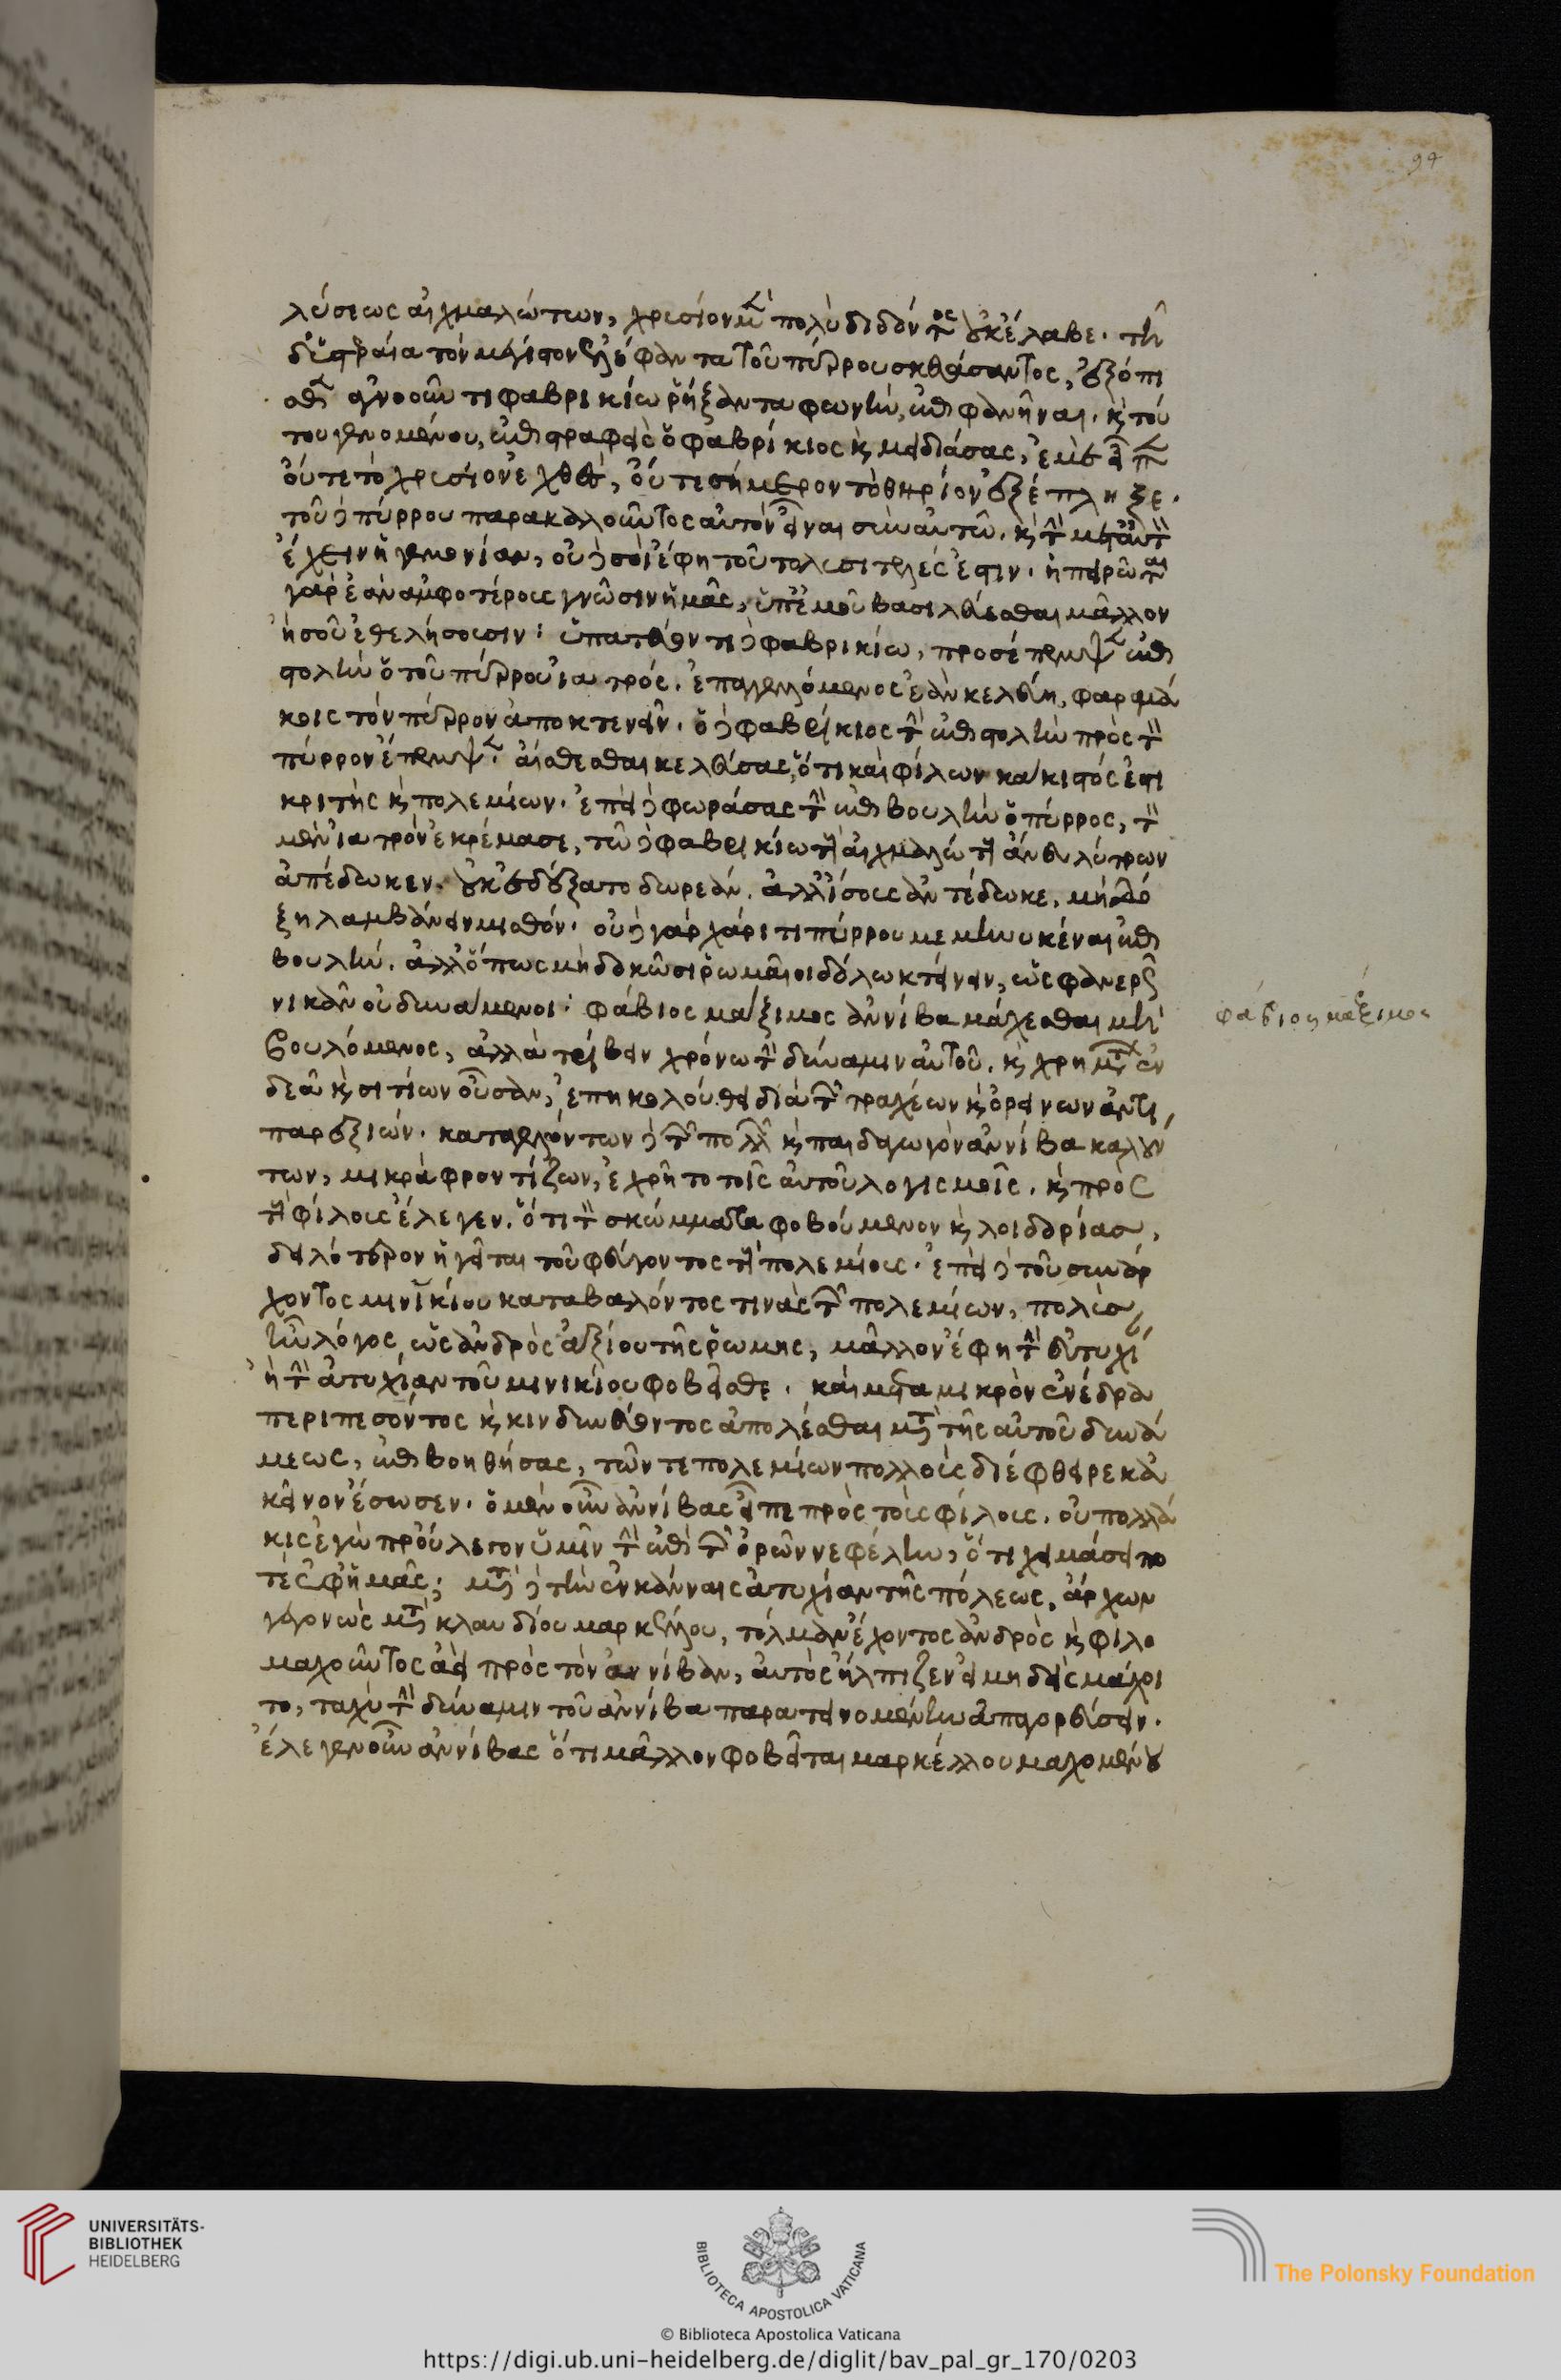 94
λύσεως αἰχμαλώτων, χρυσίον μὲν πολὺ διδόντος οὐκ ἔλαβε. τῆ
δ' ὑστεραία τὸν μέγιστον ἐλέφαντα τοῦ πύρρου σκευάσαντος, ἐξόπι
σθεν ἀγνοοῦντι φαβρικίω ῥήξαντα φωνὴν ἐπιφανῆναι. καὶ τού
του γενομένου, ἐπιστραφεὶς ὁ φαβρίκιος καὶ μειδιάσας, ἐμὲ εἶπεν
οὔτε τὸ χρυσίον ἐχθὲς, οὔτε σήμερον τὸ θηρίον ἐξέπληξε.
τοῦ δὲ πύρρου παρακαλοῦντος αὐτὸν εἶναι σὺν αὐτῶ. καὶ τὴν μετ' αὐτὸν
ἔχειν ἡγεμονίαν, οὐδὲ σοὶ ἔφη τοῦτο λυσιτελές ἐστιν. ἠπειρῶται
γὰρ ἐὰν ἀμφοτέρους γνῶσιν ἡμᾶς, ὑπ' ἐμοῦ βασιλεύεσθαι μᾶλλον
ἢ σοῦ ἐθελήσουσιν: ὑπατεύοντι δὲ φαβρικίω, προσέπεμψεν ἐπι
στολὴν ὁ τοῦ πύρρου ἰατρός. ἐπαγγελλόμενος ἐὰν κελεύη, φαρμά
κοις τὸν πύρρον ἀποκτενεῖν. ὁ δὲ φαβρίκιος τὴν ἐπιστολὴν πρὸς τὸν
πύρρον ἔπεμψεν. αἰσθέσθαι κελεύσας, ὅτι καὶ φίλων κάκιστός ἐστι
κριτὴς καὶ πολεμίων. ἐπεὶ δὲ φωράσας τὴν ἐπιβουλὴν ὁ πύρρος, τὸν
μὲν ἰατρὸν ἐκρέμασε, τῶ δὲ φαβρικίω τοὺς αἰχμαλώτους ἄνευ λύτρων
ἀπέδωκεν. οὐκ ἐδέξατο δωρεάν. ἀλλ' ἴσους ἀντέδωκε, μὴ δό
ξη λαμβάνειν μισθόν. οὐδὲ γὰρ χάριτι πύρρου μεμηνυκέναι ἐπι
βουλήν. ἀλλ' ὅπως μὴ δοκῶσι ῥωμαῖοι δόλω κτείνειν, ὡς φανερῶς
νικᾶν οὐ δυνάμενοι: φάβιος μάξιμος ἀννίβα μάχεσθαι μὴ
βουλόμενος, ἀλλὰ τρίβειν χρόνω τὴν δύναμιν αὐτοῦ. καὶ χρημάτων ἐν
δεᾶ καὶ σιτίων οὖσαν, ἐπηκολούθει διὰ τῶν τραχέων καὶ ὀρεινῶν ἀντι
παρεξιών. καταγελώντων δὲ τῶν πολλῶν καὶ παιδαγωγὸν ἀννίβα καλούν
των, μικρὰ φροντίζων, ἐχρῆτο τοῖς αὐτοῦ λογισμοῖς. καὶ πρὸς
τοὺς φίλους ἔλεγεν. ὅτι τὸν σκώμματα φοβούμενον καὶ λοιδορίας,
δειλότερον ἡγεῖται τοῦ φεύγοντος τοὺς πολεμίους. ἐπεὶ δὲ τοῦ συνάρ
χοντος μινικίου καταβαλόντος τινὰς τῶν πολεμίων, πολὺς
ἦν λόγος ὡς ἀνδρὸς ἀξίου τῆς ῥώμης, μᾶλλον ἔφη τὴν εὐτυχί
ἢ τὴν ἀτυχίαν τοῦ μινικίου φοβεῖσθε. καὶ μετὰ μικρὸν ἐνέδρα
περιπεσόντος καὶ κινδυνεύοντος ἀπολέσθαι μετὰ τῆς αὐτοῦ δυνά
μεως, ἐπιβοηθήσας, τῶν τε πολεμίων πολλοὺς διέφθειρε κἀ
κεῖνον ἔσωσεν. ὁ μὲν οὖν ἀννίβας εἶπε πρὸς τοὺς φίλους. οὐ πολλά
κις ἐγὼ προὔλεγον ὑμῖν τὴν ἐπὶ τῶν ὀρῶν νεφέλην, ὅτι χειμάσει πο
τὲ ἐφ' ἡμᾶς; μετὰ δὲ τὴν ἐν κάνναις ἀτυχίαν τῆς πόλεως, ἄρχων
γεγονὼς μετὰ κλαυδίου μαρκέλλου, τόλμαν ἔχοντος ἀνδρὸς καὶ φιλο
μαχοῦντος ἀεὶ πρὸς τὸν ἀννίβαν, αὐτὸς ἤλπιζεν εἰ μηδεὶς μάχοι
το, ταχὺ τὴν δύναμιν τοῦ ἀννίβα παρατεινομένην ἀπαγορεύσειν.
ἔλεγεν οὖν ἀννίβας ὅτι μᾶλλον φοβεῖται μαρκέλλου μαχομένου
φάβιος μάξιμος
UNIVERSITÄTS-
BIBLIOTHEK
HEIDELBERG
BIBLIOTECA APOSTOLICA VATICANA
The Polonsky Foundation
© Biblioteca Apostolica Vaticana
https://digi.ub.uni-heidelberg.de/diglit/bav_pal_gr_170/0203